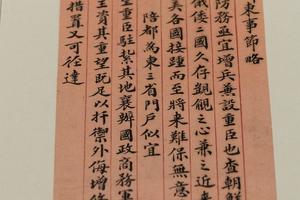 東事節略
防務亟宜增兵兼設重臣也查朝鮮
俄倭二國久存覬覦之心兼之近來
美各國接踵而至將來難保無意
陪都為東三省門戶似宜
型重臣駐紮其地襄辦國政商務軍
王資其重望既足以扞禦外侮增修
措置又可徑達